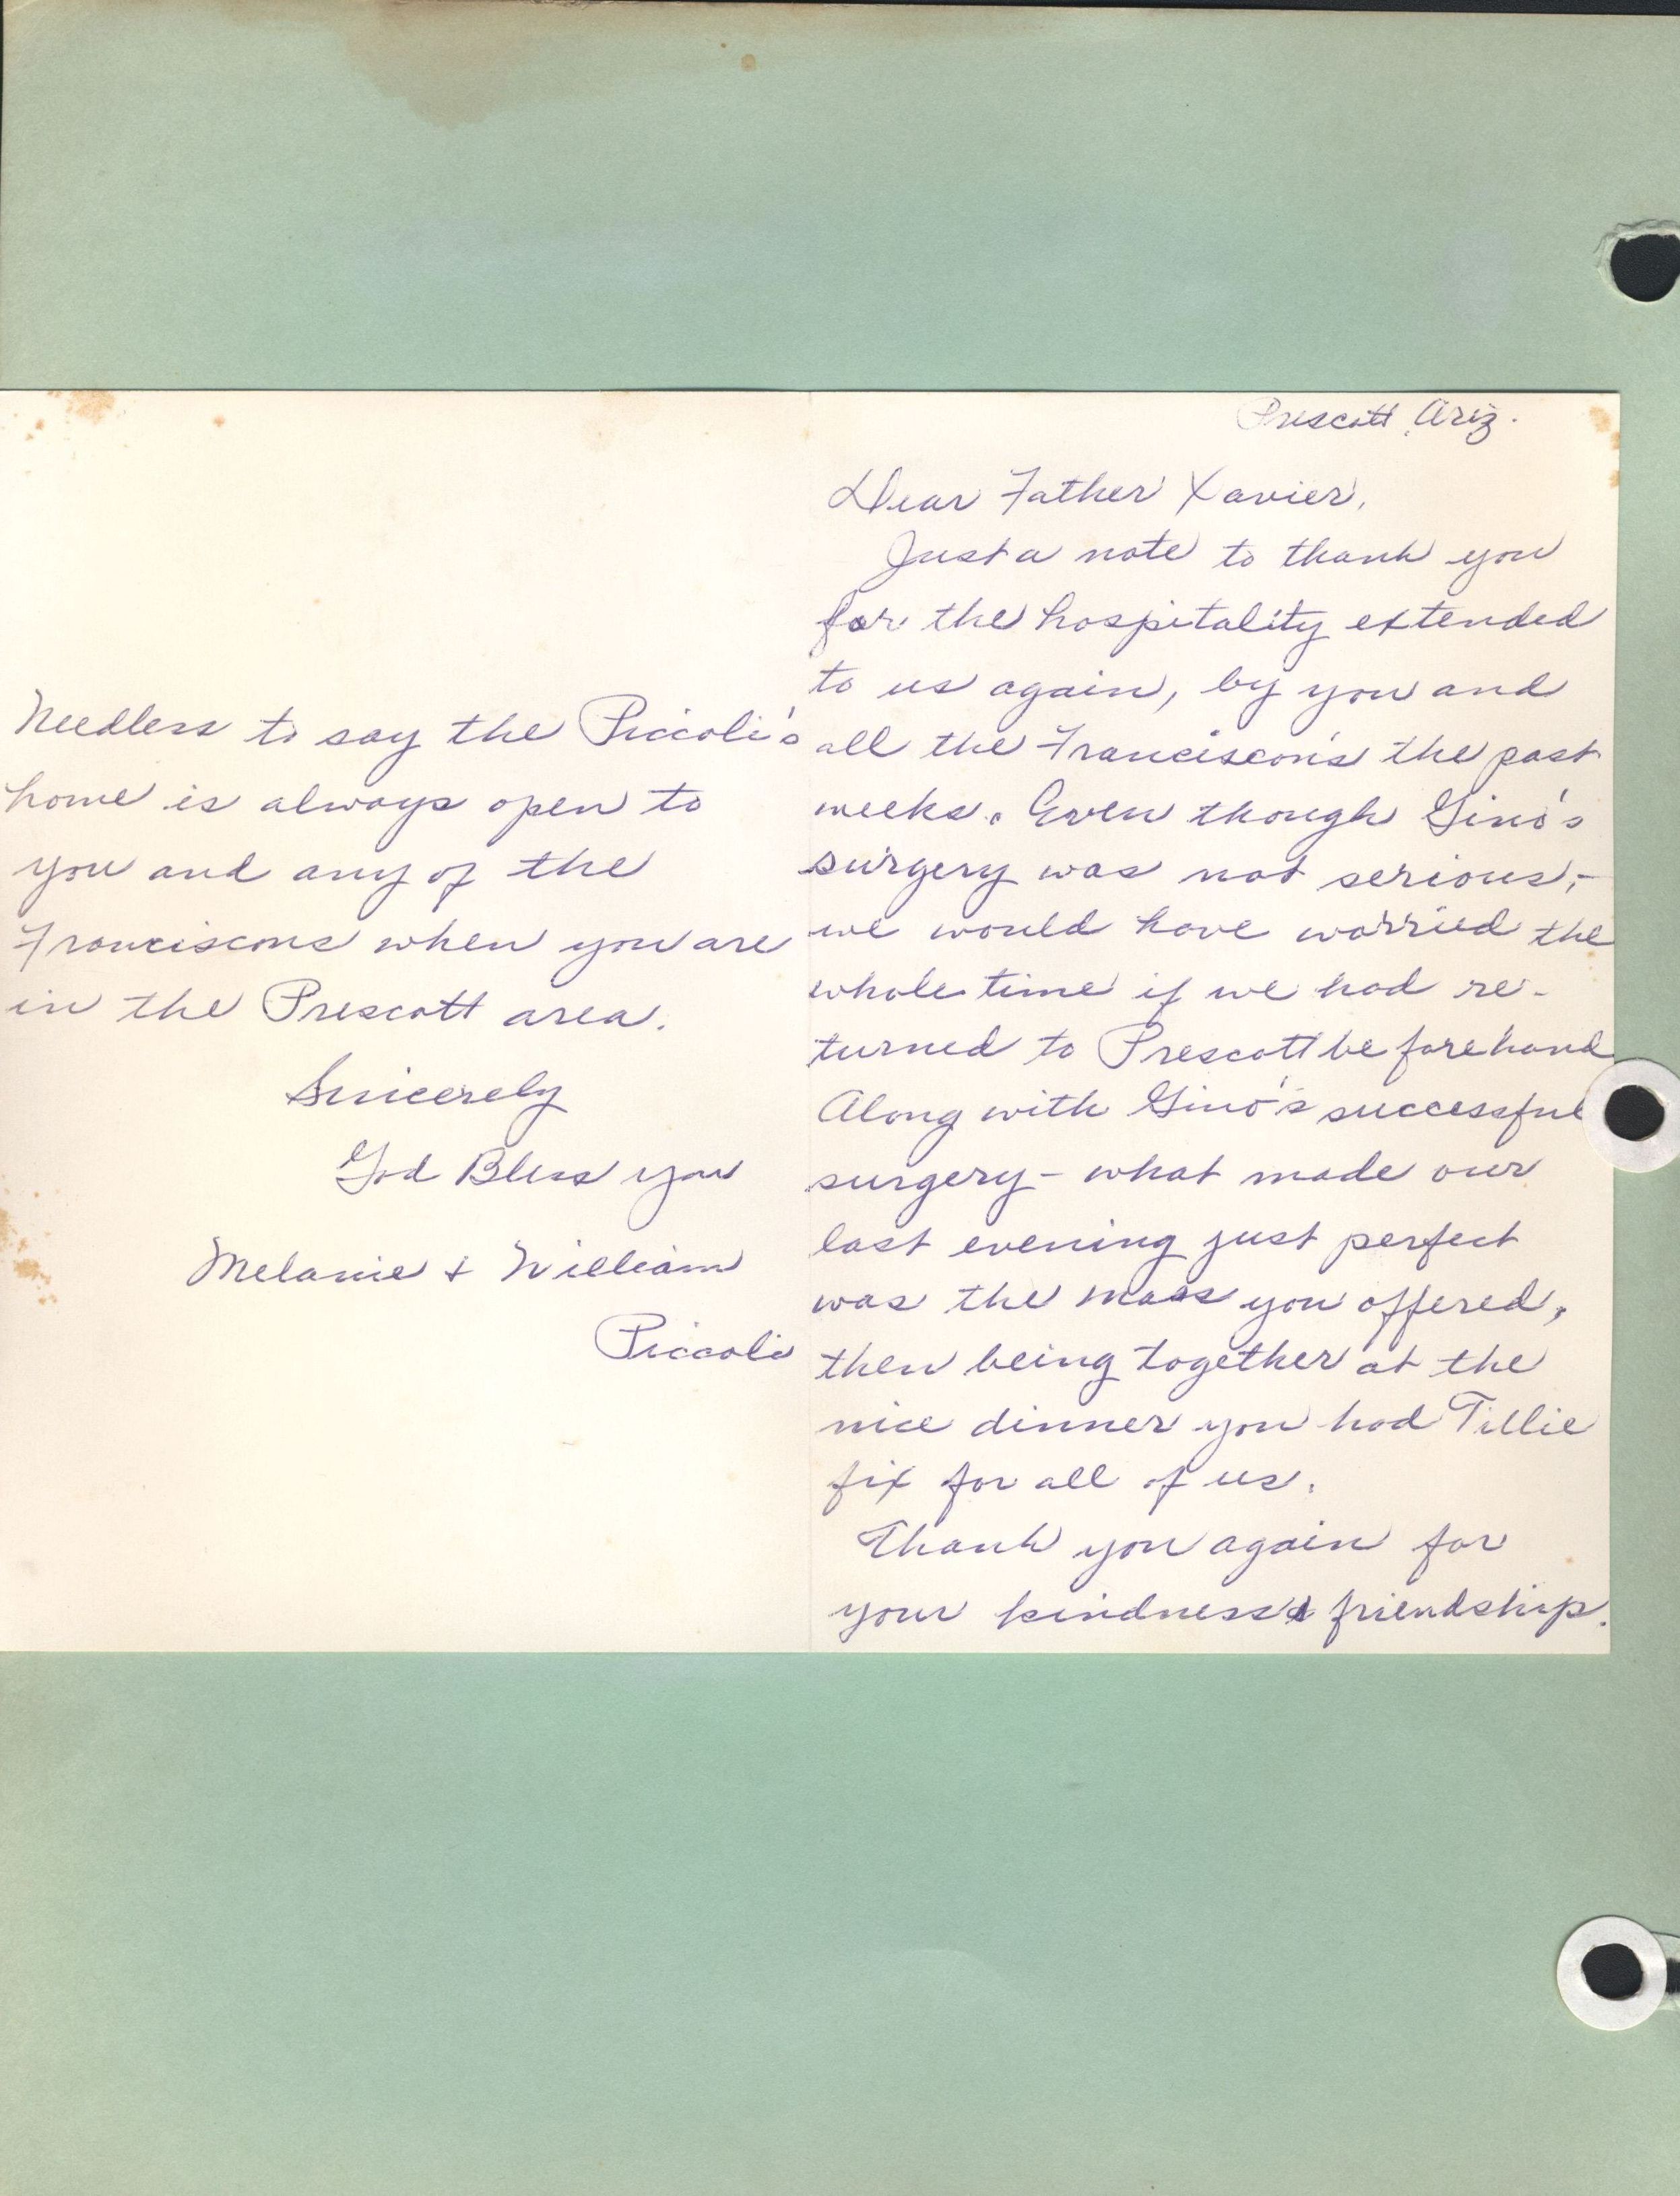 Prescott, Ariz.
Dear Father Xavier,
Just a note to thank you
for the hospitality extended
to us again, by you and
all the Franciscan's the past
weeks. Even though Gino's
surgery was not serious,-
we would have worried the
whole time if we had re-
turned to Prescott beforehand
Along with Gino's successful
surgery - what made our
last evening just perfect
was the mass you offered,
then being together at the
nice dinner you had Tillie
fix for all of us.
Thank you again for
your kindness & friendship.
Needless to say the Piccoli's
home is always open to
you and any of the
Franciscans when you are
in the Prescott area.
Sincerely
God Bless you
Melanie + William
Piccoli